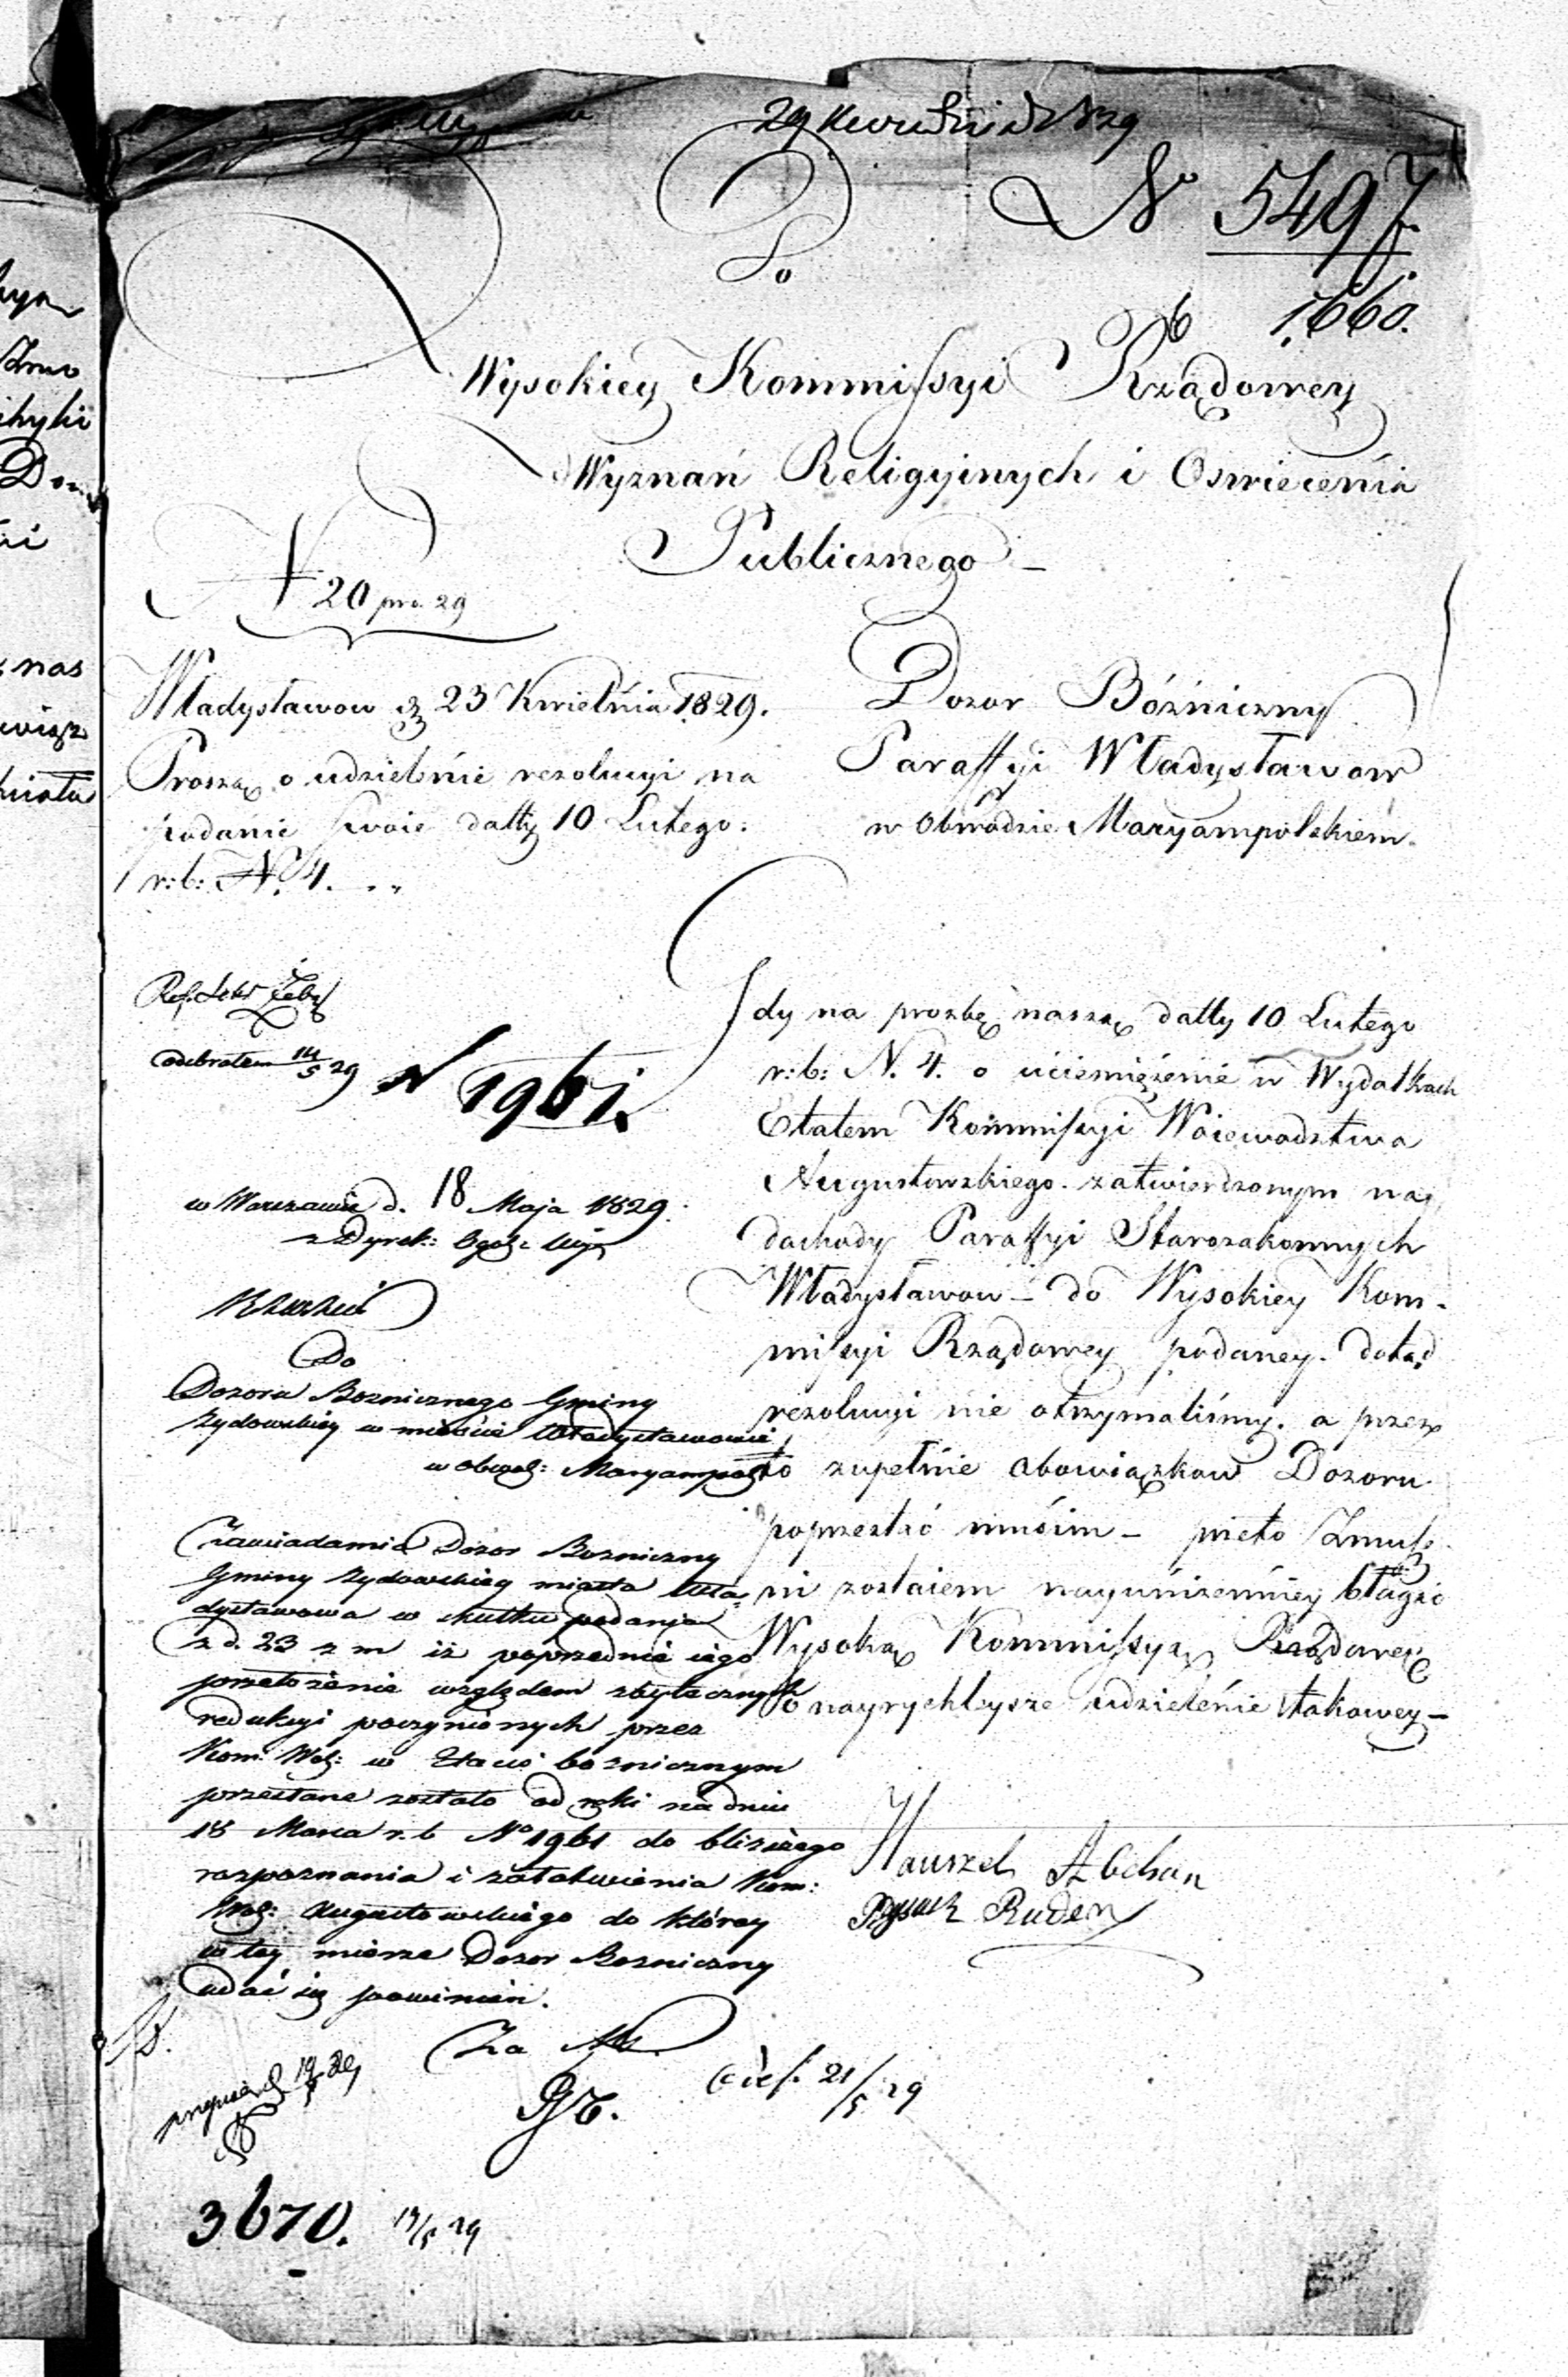 29 Kwietnia 829
No 5497.
1,660.
Do
Wysokiey Kommissyi Rządowey
Wyznań Religyinych i Oswiecenia
Publicznego
N 20 pro. 29
Władysławow d. 23 Kwietnia 1829.
Proszą o udzielenie rezolucyi na
podanie swoie datty 10 Lutego:
r: b: N. 4.
Dozor Bóżniczny
Paraffyi Władysławow
w Obwodzie Maryampolskiem.
odebrałem 14/5 29
N 1961.
w Warszawie d. 18 Maja 1829.
z Dyrek:
Do
Dozoru Boznicznego Gminy
Żydowskiey w mieście Władysławowie
w obwod: Maryampol
Zawiadamia Dozor Bozniczny
Gminy Żydowskiey miasta Wła-
dysławowa w skutku podania
z d. 23 z m iż poprzednie iego
przełożenie względem zbytecznych
redukcyi poczynionych przez
Kom: Woj: w Etacie boznicznym
przesłane zostało od ręki na dniu
18 Marca r. b No 1961 do bliższego
rozpoznania i załatwienia Kom:
Woj: Augustowskiego do którey
w tey mierze Dozor Bozniczny
udać się powinien.
Za
3670. 19/5 29
Gdy na prozbę naszą datty 10 Lutego
r: b: N. 4. o uciemiężenie w Wydatkach
Etatem Kommissyi Woiewodztwa
Augustowskiego zatwierdzonym na
dochody Paraffyi Starozakonnych
Władysławow – do Wysokiey Kom-
missyi Rządowey podaney. dotąd
rezolucyi nie otrzymaliśmy. a przez
to zupełnie obowiązkow Dozoru
poprzestać musim – przeto Zmusze-
ni zostaiem nayuniżenniey błagać
Wysoką Kommissyą Rządowę
o nayrychleysze udzielenie takowey –
Ruden
21/5 29